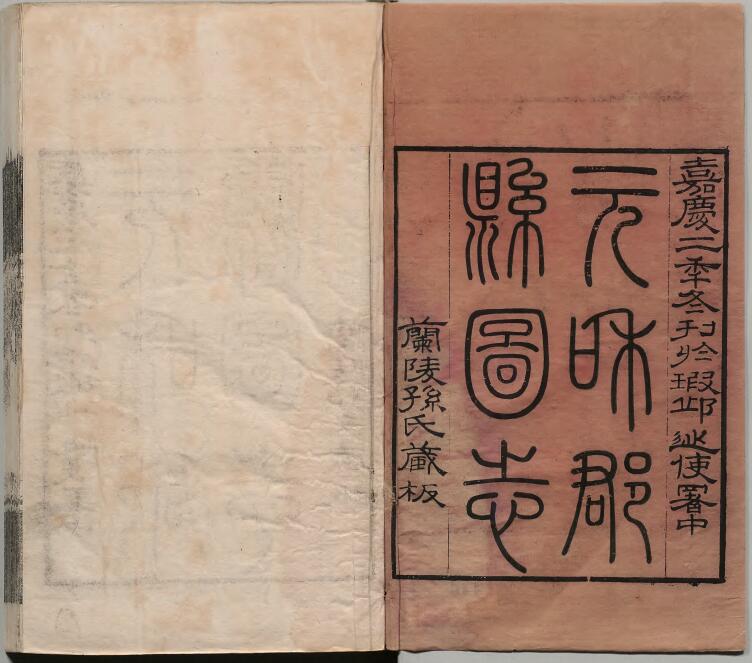 嘉慶二秊冬刊於瑕邱巡使署中
元和郡
縣圖志
蘭陵孫氏藏板